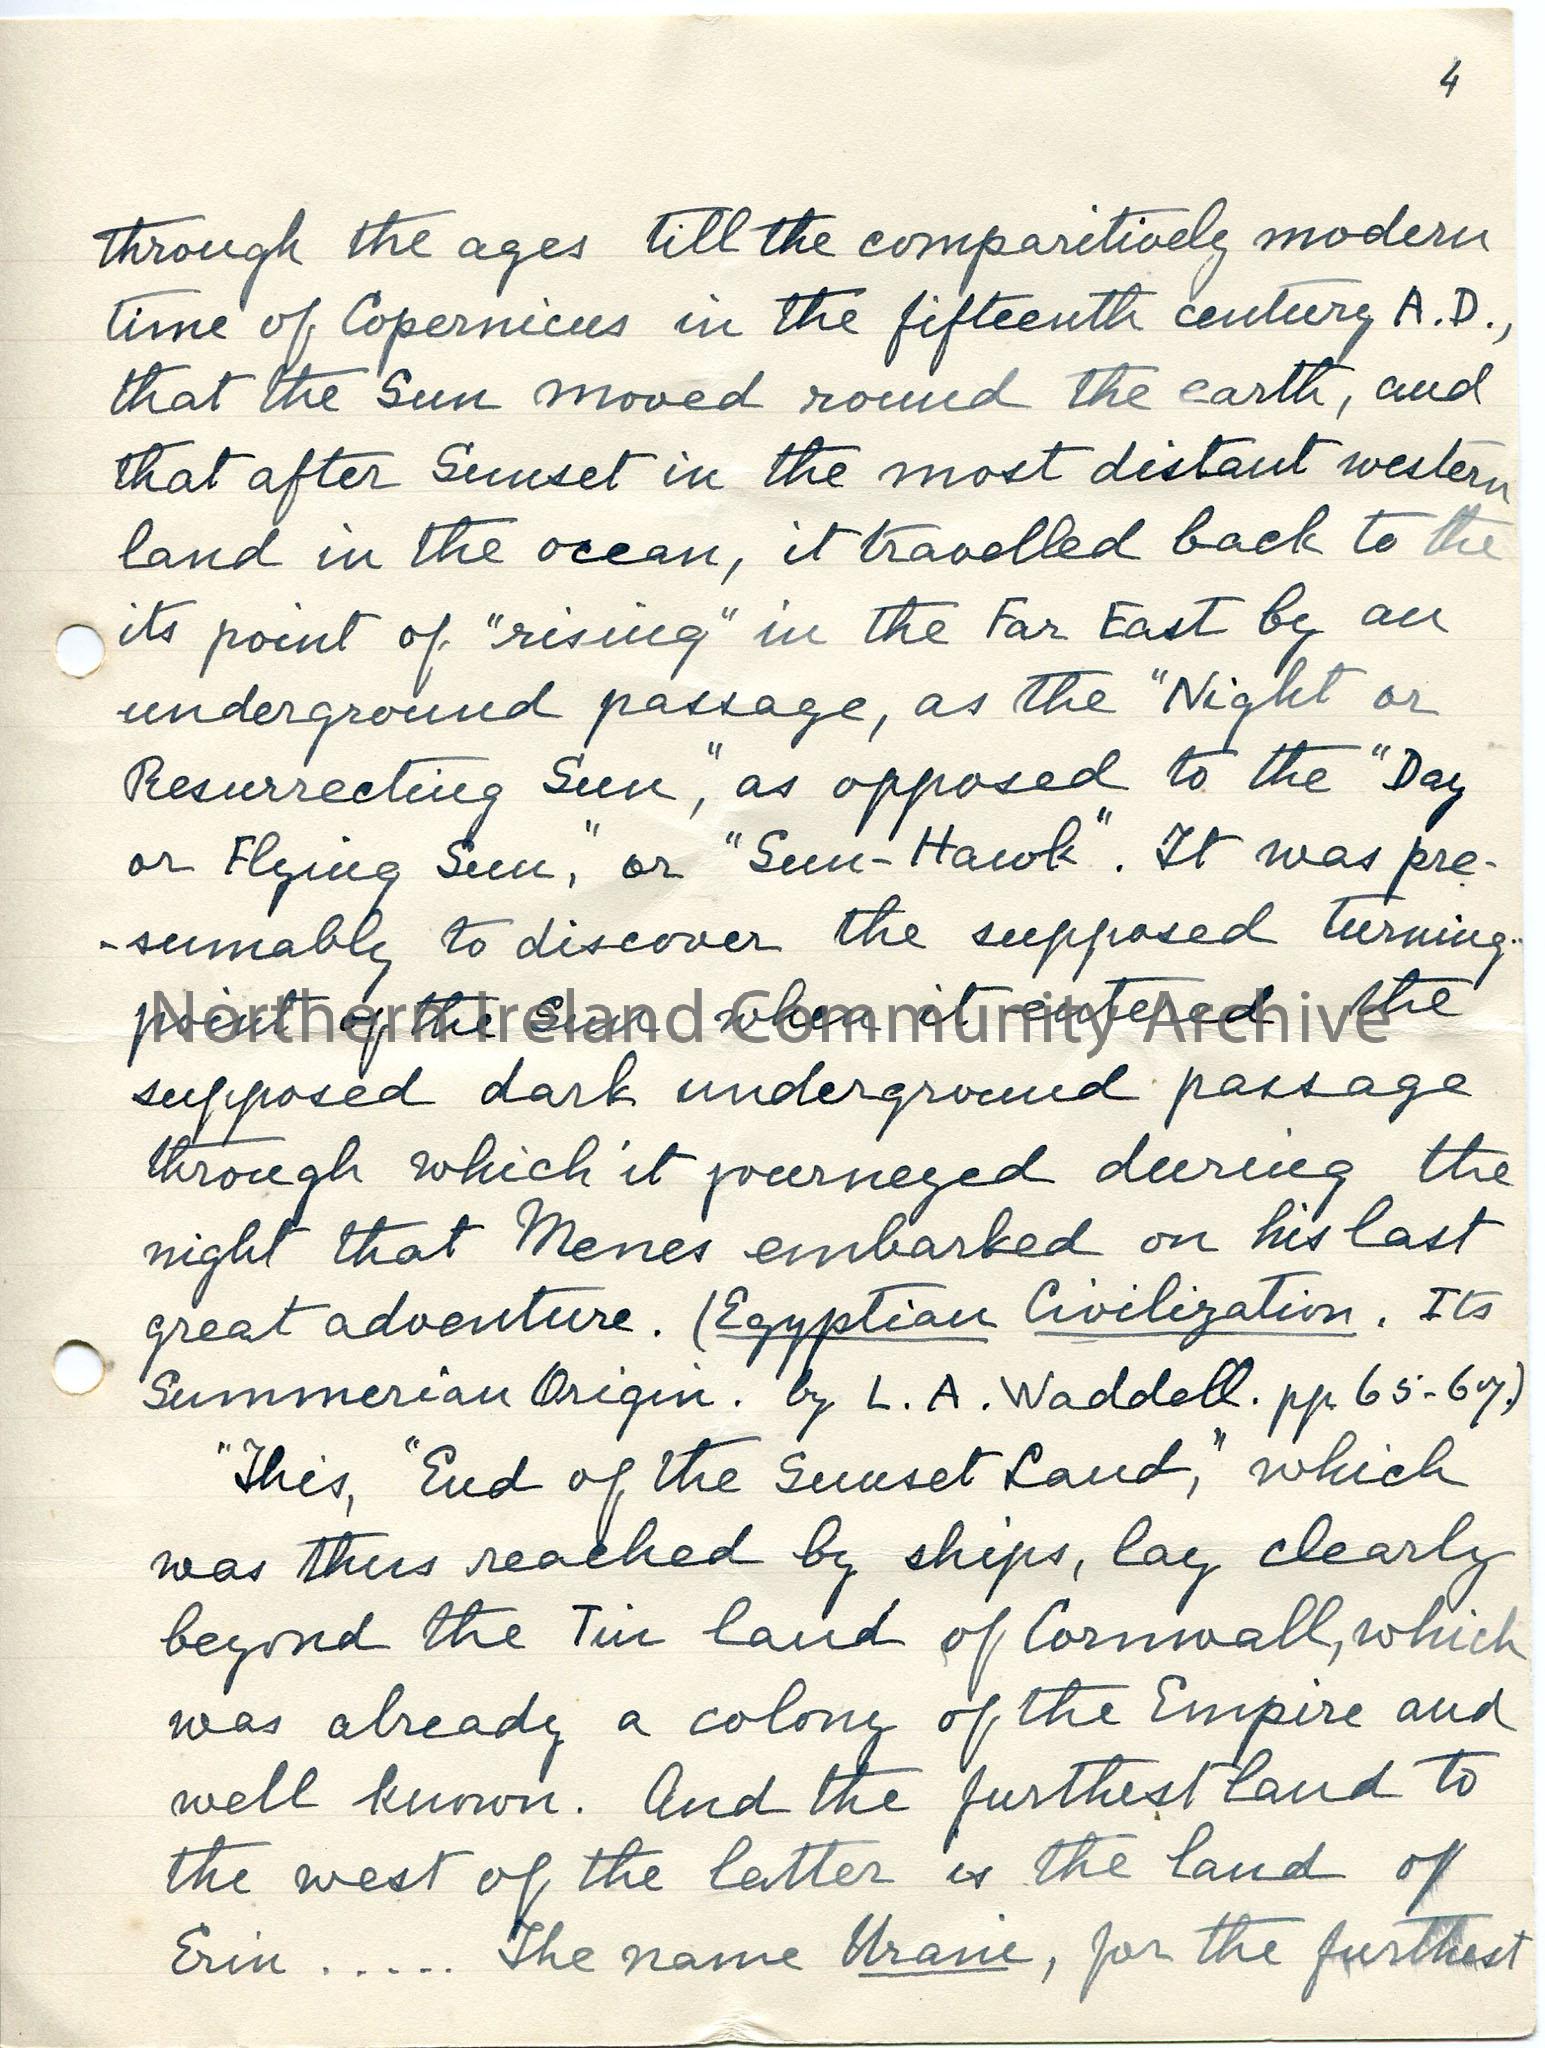 4
through the ages till the comparitively modern
time of Copernicus in the fifteenth century A.D.,
that the Sun moved round the earth, and
that after Sunset in the most distant western
land in the ocean, it travelled back to the
its point of "rising" in the Far East by an
underground passage, as the "Night or
Resurrecting Sun," as opposed to the "Day
or Flying Sun," or "Sun-Hawk". It was pre-
-sumably to discover the supposed turning-
point of the Sun when it entered the
Northern Ireland Community Archive
supposed dark underground passage
through which it journeyed during the
night that Menes embarked on his last
great adventure. (Egyptian Civilization. Its
Summerian Origin. by L. A. Waddell. pp. 65-67.)
"This, "End of the Sunset Land," which
was thus reached by ships, lay clearly
beyond the Tin land of Cornwall, which
was already a colony of the Empire and
well known. And the furthest land to
the west of the latter is the land of
Erin ..... The name Urani, for the furthest